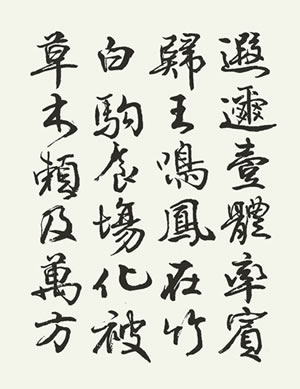 遐邇壹體率賓
歸王鳴鳳在竹
白駒食場化被
草木賴及萬方